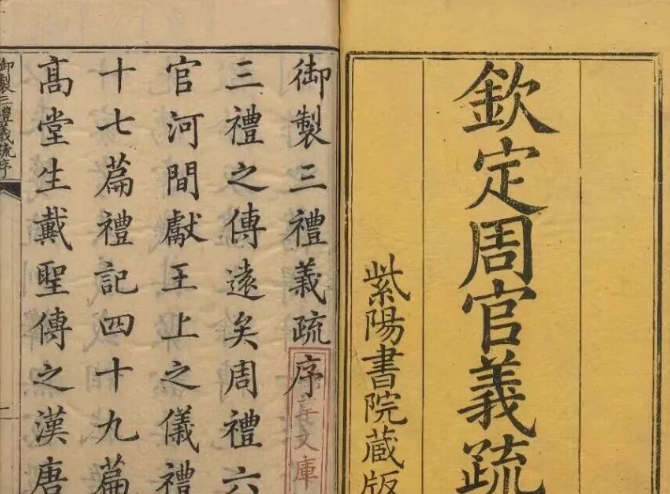 欽定周官義疏
紫陽書院蔵版
御製三禮義疏序
三禮之傳遠矣周禮六
官河間獻王上之儀禮
十七篇禮記四十九篇
高堂生戴聖傳之漢唐
御製三禮義疏序
文庫